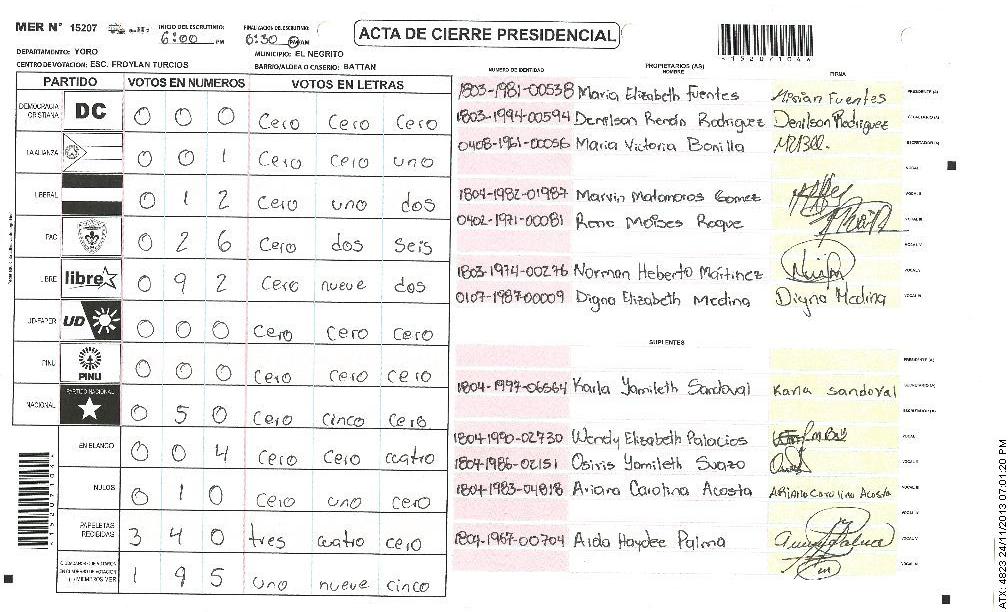 MER N° 15207
INICIO DEL ESCRUTINIO: 6:00 PM
FINALIZACION DEL ESCRUTINIO: 6:30 PM AM
ACTA DE CIERRE PRESIDENCIAL
DEPARTAMENTO: YORO
MUNICIPIO: EL NEGRITO
CENTRO DE VOTACION: ESC. FROYLAN TURCIOS
BARRIO/ALDEA O CASERIO: BATTAN
PARTIDO VOTOS EN NUMEROS VOTOS EN LETRAS
DEMOCRACIA CRISTIANA DC 0 0 0 Cero Cero Cero
LA ALIANZA 0 0 1 Cero cero uno
LIBERAL 0 1 2 Cero uno dos
PAC 0 2 6 Cero dos Seis
LIBRE libre 0 9 2 Cero nueve dos
UD-FAPER UD 0 0 0 Cero Cero Cero
PINU PINU 0 0 0 Cero Cero Cero
NACIONAL PARTIDO NACIONAL 0 5 0 Cero cinco Cero
EN BLANCO 0 0 4 Cero Cero cuatro
NULOS 0 1 0 Cero uno cero
PAPELETAS RECIBIDAS 3 4 0 tres cuatro cero
1 9 5 uno nueve cinco
NUMERO DE IDENTIDAD PROPIETARIOS (AS) NOMBRE FIRMA
1803-1981-00538 Maria Elizabeth Fuentes Mirian Fuentes PRESIDENTE (A)
1803-1994-00594 Denilson Renan Rodriguez Denilson Rodriguez
0408-1961-00056 Maria Victoria Bonilla SECRETARIO (A)
VOCAL I
1804-1982-01987 Marvin Matamoros Gomez VOCAL II
0402-1971-00081 Rene Moises Roque VOCAL III
VOCAL IV
1803-1974-00276 Norman Heberto Martinez VOCAL V
0107-1987-00009 Digna Elizabeth Medina Digna Medina VOCAL VI
SUPLENTES
PRESIDENTE (A)
1804-1997-06564 Karla Yamileth Sandoval Karla Sandoval SECRETARIO (A)
1804-1990-02730 Wendy Elizabeth Palacios VOCAL I
1804-1986-02151 Osiris Yamileth Suazo VOCAL II
1804-1983-04818 Ariana Carolina Acosta Ariana Carolina Acosta VOCAL III
VOCAL IV
1804-1967-00704 Aida Haydee Palma VOCAL V
VOCAL VI
ATX: 4823 24/11/2013 07:01:20 PM